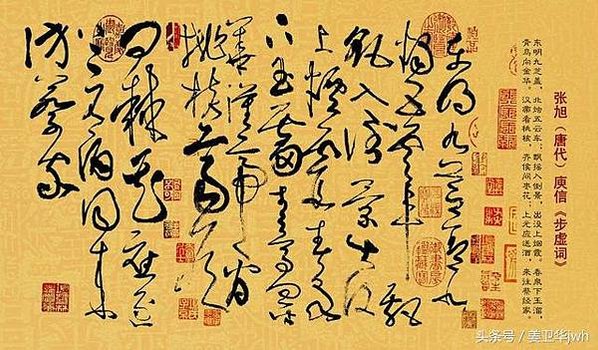 张旭（唐代）庾信《步虚词》
东明九芝盖，北烛五云车；飘摇入倒景，出没上烟霞。春泉下玉溜，
青鸟向金华。汉帝看桃核，齐侯问枣花；上元应送酒，来往蔡经家。
東明九芝蓋北
燭五雲車飄
飖入倒景出没
上煙霞春泉
下玉霤青鳥向金
華漢帝看
桃核齊侯
問棘花應逐
上元酒同來
訪蔡家
头条号 / 姜卫华jwh